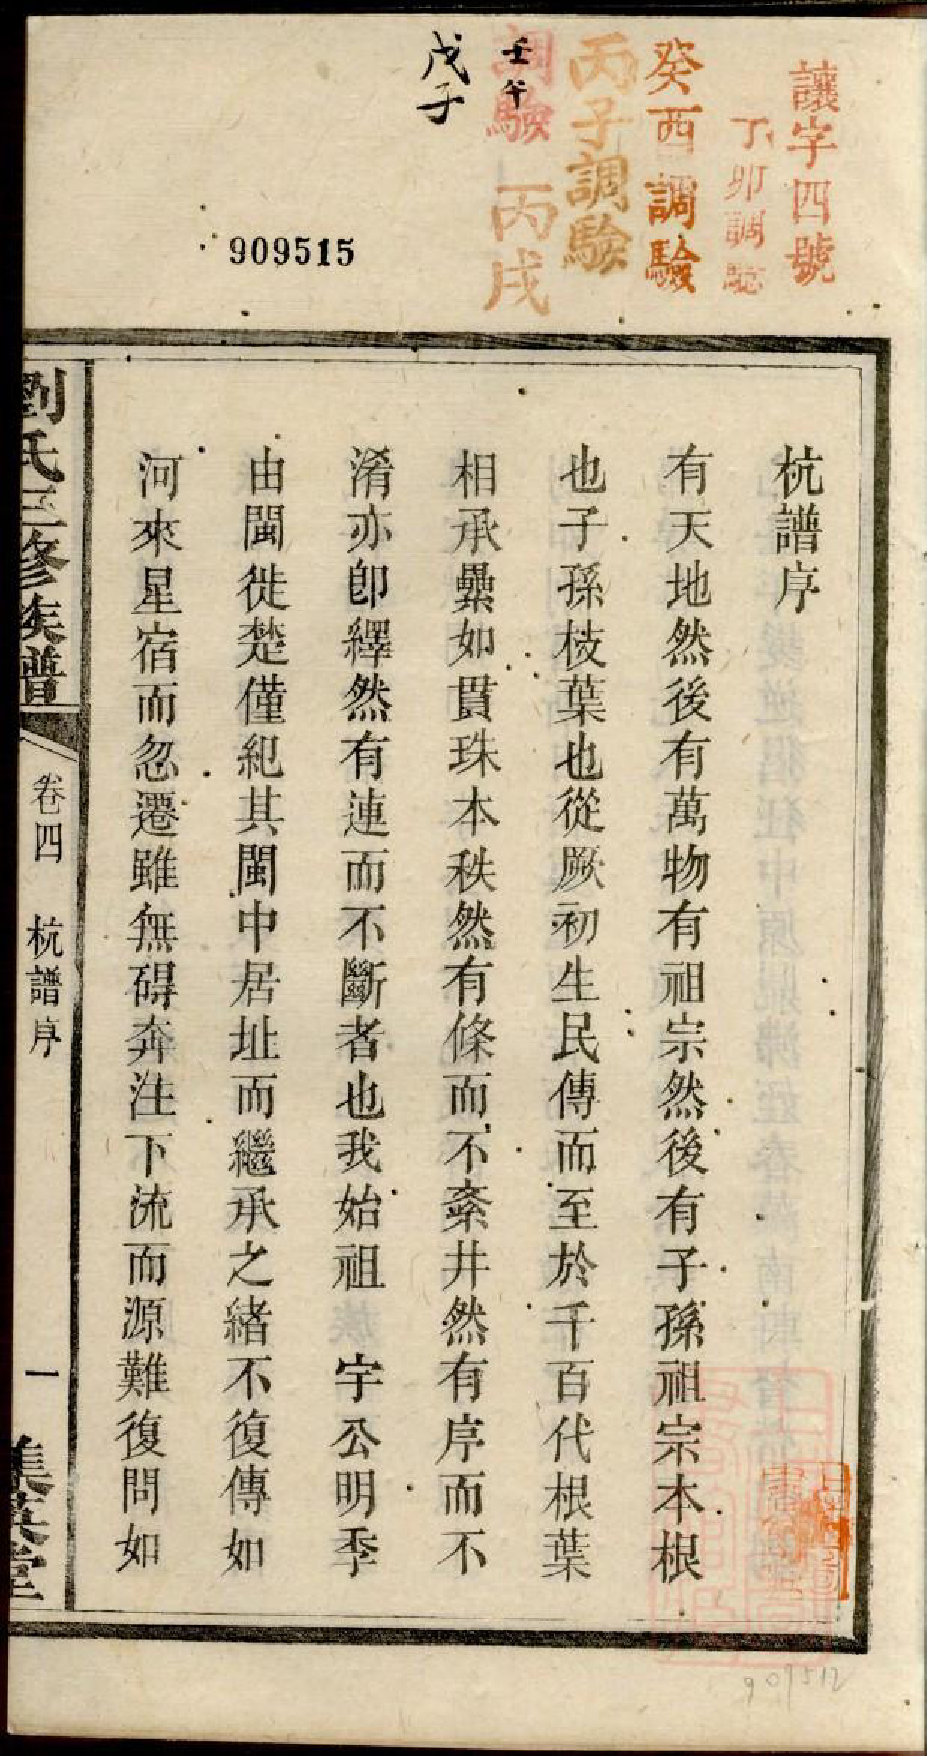 讓字四號
丁卯調驗
癸酉調驗
丙子調驗
調驗 丙戌
壬午
戊子
909515
杭譜序
有天地然後有萬物有祖宗然後有子孫祖宗本根
也子孫枝葉也從厥初生民傳而至於千百代根葉
相承纍如貫珠本秩然有條而不紊井然有序而不
淆亦卽繹然有連而不斷者也我始祖 宇公明季
由閩徙楚僅紀其閩中居址而繼承之緒不復傳如
河來星宿而忽遷雖無碍奔注下流而源難復問如
劉氏三修族譜
卷四 杭譜序
一
集英堂
909512